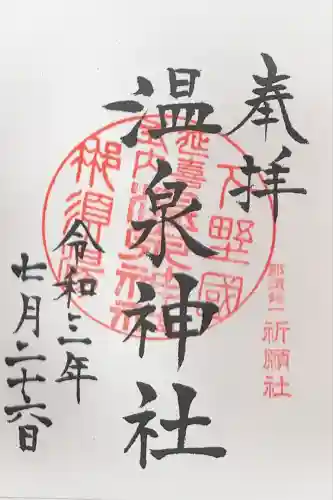 奉拝
那須郡一祈願社
温泉神社
下野國
延喜式内温泉神社
那須郷
令和三年
七月二十六日